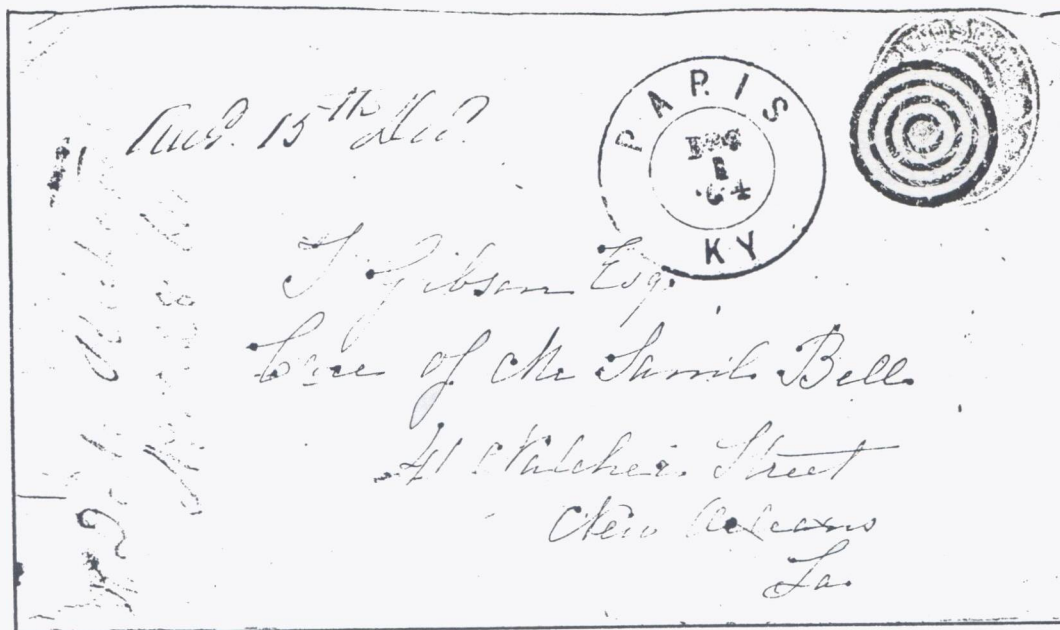 Ansd. 15th Dec.
PARIS
DEC
1
'64
KY
T Gibson Esq.
Care of Mr Saml. Bell
41 Natchez Street
New Orleans
La.